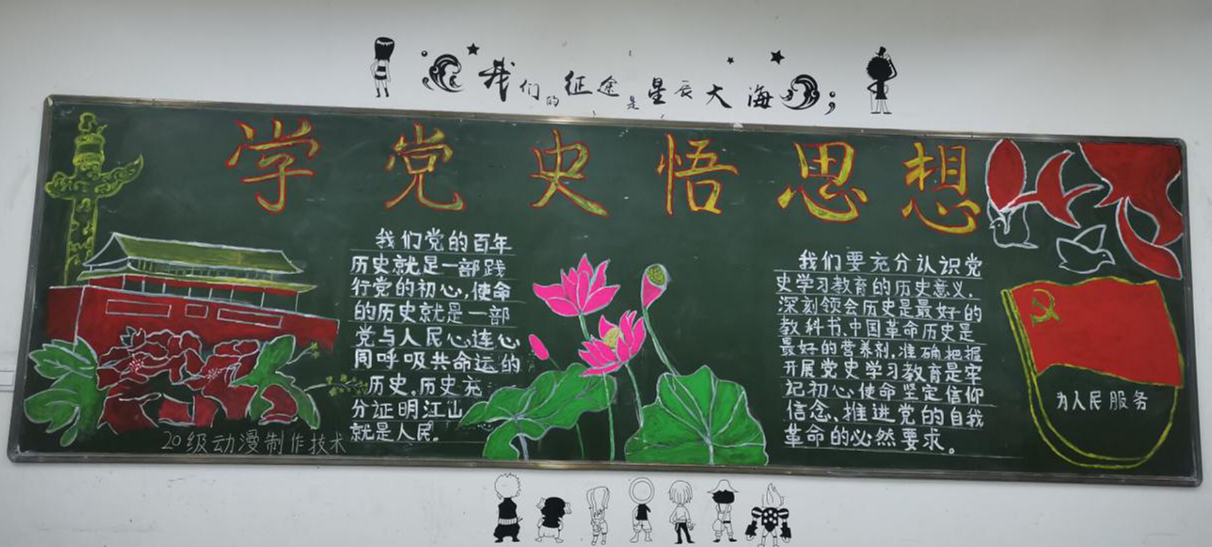 我们的征途是星辰大海
学党史悟思想
我们党的百年
历史就是一部践
行党的初心,使命
的历史就是一部
党与人民心连心
同呼吸共命运的
历史,历史充
分证明,江山
就是人民。
20级动漫制作技术
我们要充分认识党
史学习教育的历史意义,
深刻领会历史是最好的
教科书,中国革命历史是
最好的营养剂,准确把握
开展党史学习教育是牢
记初心使命坚定信仰
信念、推进党的自我
革命的必然要求。
为人民服务